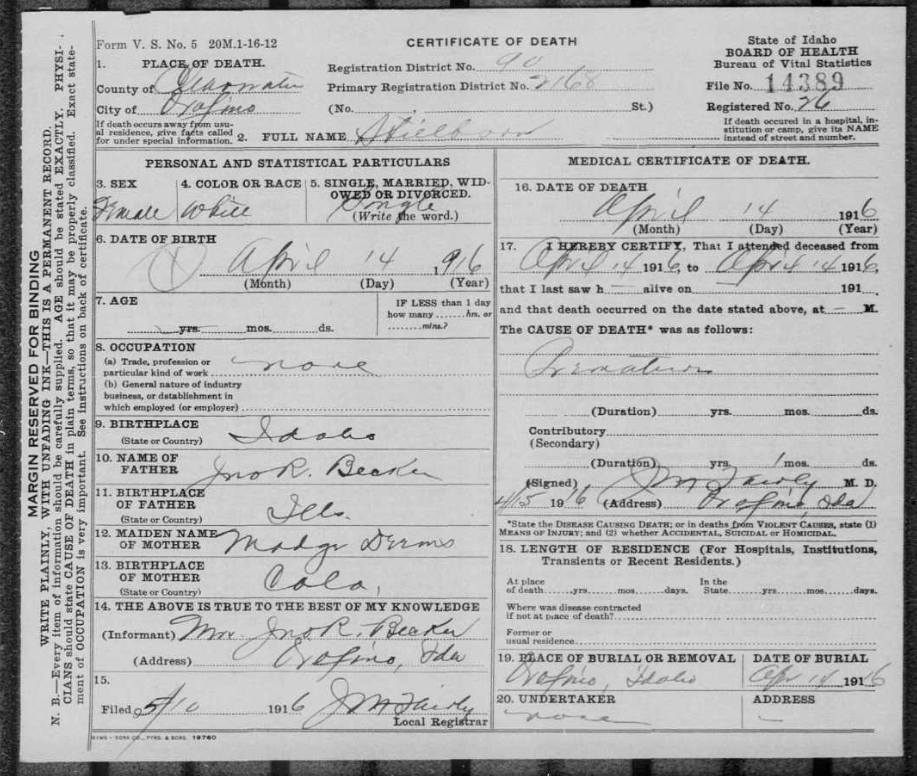 MARGIN RESERVED FOR BINDING
WRITE PLAINLY, WITH UNFADING INK—THIS IS A PERMANENT RECORD.
N. B.—Every item of information should be carefully supplied. AGE should be stated EXACTLY. PHYSI-
CIANS should state CAUSE OF DEATH in plain terms, so that it may be properly classified. Exact state-
ment of OCCUPATION is very important. See instructions on back of certificate.
Form V. S. No. 5 20M.1-16-12
CERTIFICATE OF DEATH
State of Idaho
BOARD OF HEALTH
Bureau of Vital Statistics
File No. 14389
Registered No. 26
If death occured in a hospital, in-
stitution or camp, give its NAME
instead of street and number.
1. PLACE OF DEATH.
County of Clearwater
City of Orofino
If death occurs away from usu-
al residence, give facts called
for under special information.
Registration District No. 90
Primary Registration District No. 2168
(No. St.)
2. FULL NAME Stillborn
PERSONAL AND STATISTICAL PARTICULARS
3. SEX
Female
4. COLOR OR RACE
White
5. SINGLE, MARRIED, WID-
OWED OR DIVORCED.
Single
(Write the word.)
6. DATE OF BIRTH
April 14 1916
(Month) (Day) (Year)
7. AGE
yrs. mos. ds.
IF LESS than 1 day
how many hrs. or
mins.?
8. OCCUPATION
(a) Trade, profession or
particular kind of work none
(b) General nature of industry
business, or dstablishment in
which employed (or employer)
9. BIRTHPLACE
(State or Country) Idaho
10. NAME OF
FATHER Jno R. Becker
11. BIRTHPLACE
OF FATHER
(State or Country) Ills.
12. MAIDEN NAME
OF MOTHER Madge
13. BIRTHPLACE
OF MOTHER
(State or Country) Colo.
14. THE ABOVE IS TRUE TO THE BEST OF MY KNOWLEDGE
(Informant) Mrs Jno R. Becker
(Address) Orofino, Ida
15.
Filed 5/10 1916 J M Fairly
Local Registrar
MEDICAL CERTIFICATE OF DEATH.
16. DATE OF DEATH
April 14 1916
(Month) (Day) (Year)
17. I HEREBY CERTIFY, That I attended deceased from
April 14 1916, to April 14 1916,
that I last saw h alive on 191
and that death occurred on the date stated above, at M.
The CAUSE OF DEATH* was as follows:
Premature
(Duration) yrs. mos. ds.
Contributory
(Secondary)
(Duration) yrs. mos. ds.
(Signed) J M Fairly M. D.
4/15 1916 (Address) Orofino, Ida
*State the DISEASE CAUSING DEATH; or in deaths from VIOLENT CAUSES, state (1)
MEANS OF INJURY; and (2) whether ACCIDENTAL, SUICIDAL or HOMICIDAL.
18. LENGTH OF RESIDENCE (For Hospitals, Institutions,
Transients or Recent Residents.)
At place
of death yrs. mos. days.
In the
State yrs. mos. days.
Where was disease contracted
if not at place of death?
Former or
usual residence
19. PLACE OF BURIAL OR REMOVAL
Orofino, Idaho
DATE OF BURIAL
Apr 14 1916
20. UNDERTAKER
none
ADDRESS